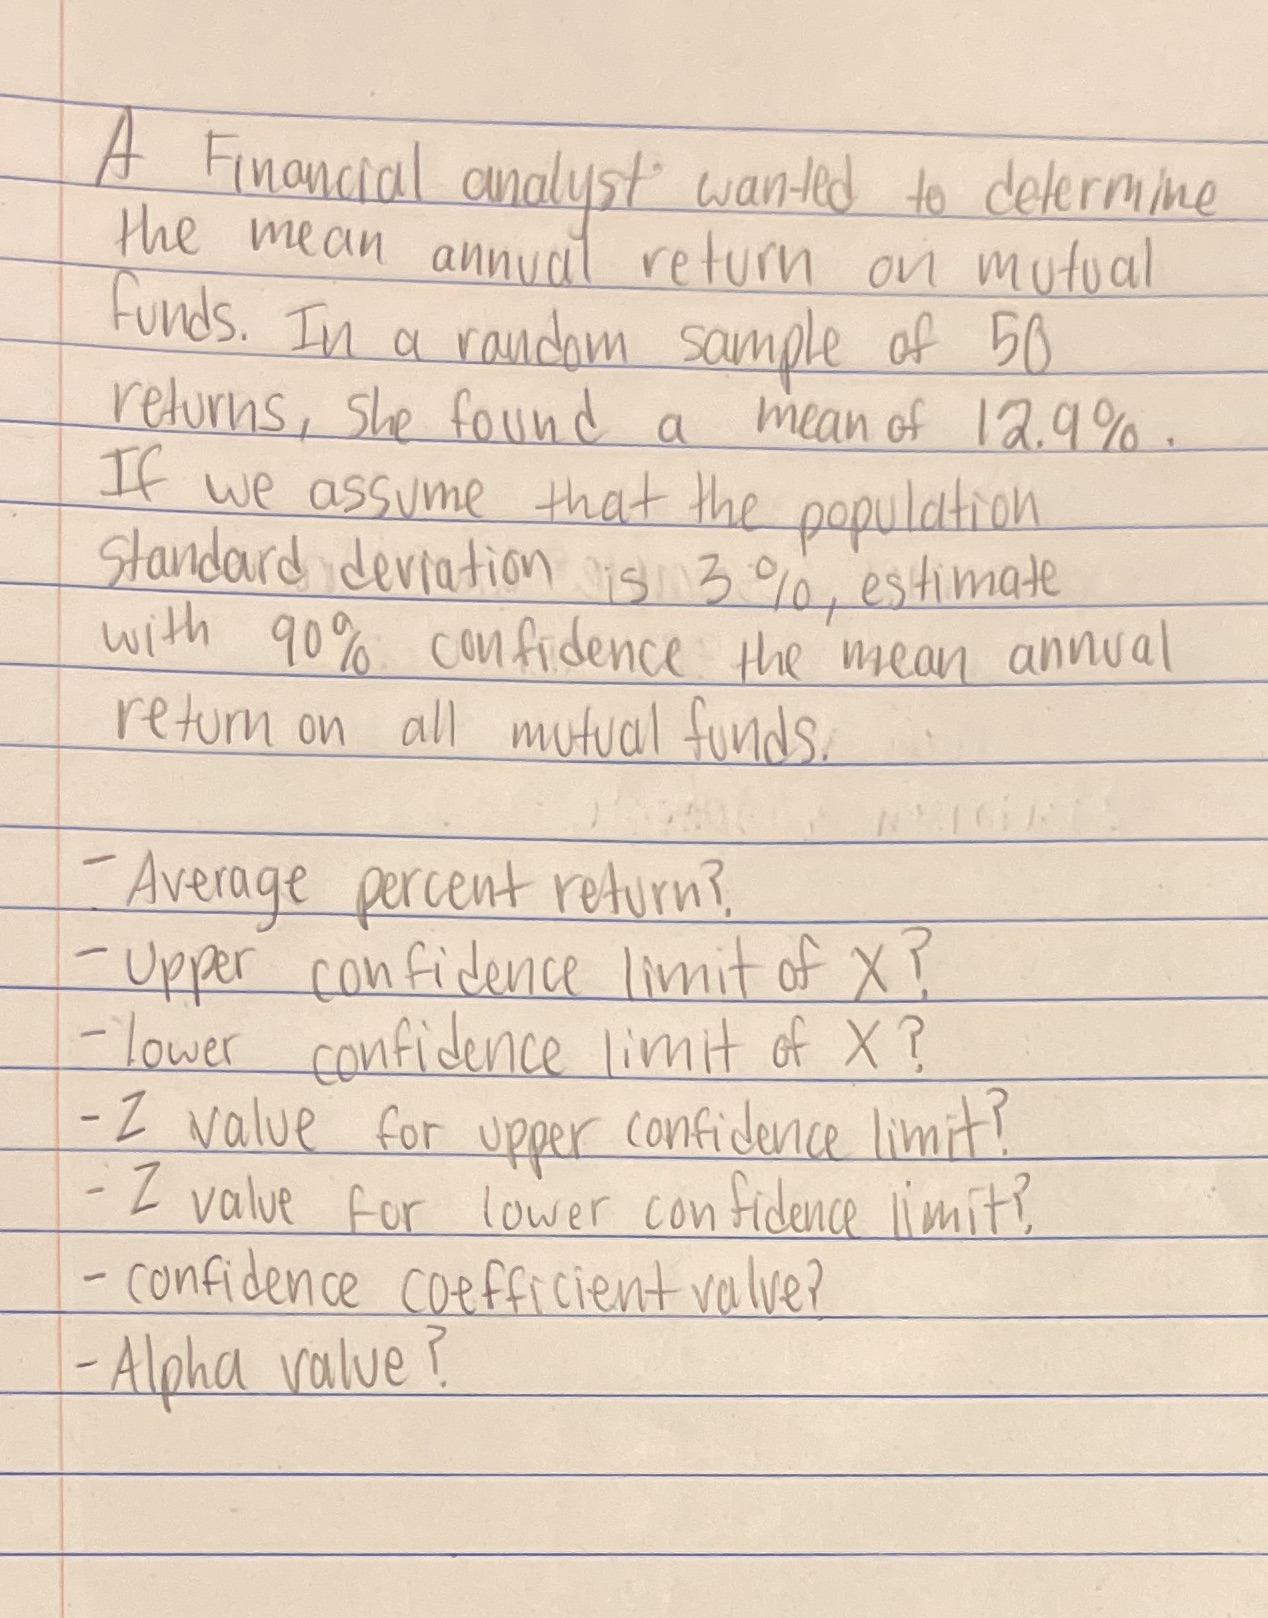 A Financial analyst wanted to determine
the mean annual return on mutual
funds. In a random sample of 50
returns, she found a mean of 12.9%.
If we assume that the population
standard deviation is 3%, estimate
with 90% confidence the mean annual
return on all mutual funds.
- Average percent return?
- Upper confidence limit of X?
- lower confidence limit of X?
- Z value for upper confidence limit?
- Z value for lower confidence limit?
- confidence coefficient value?
- Alpha value?